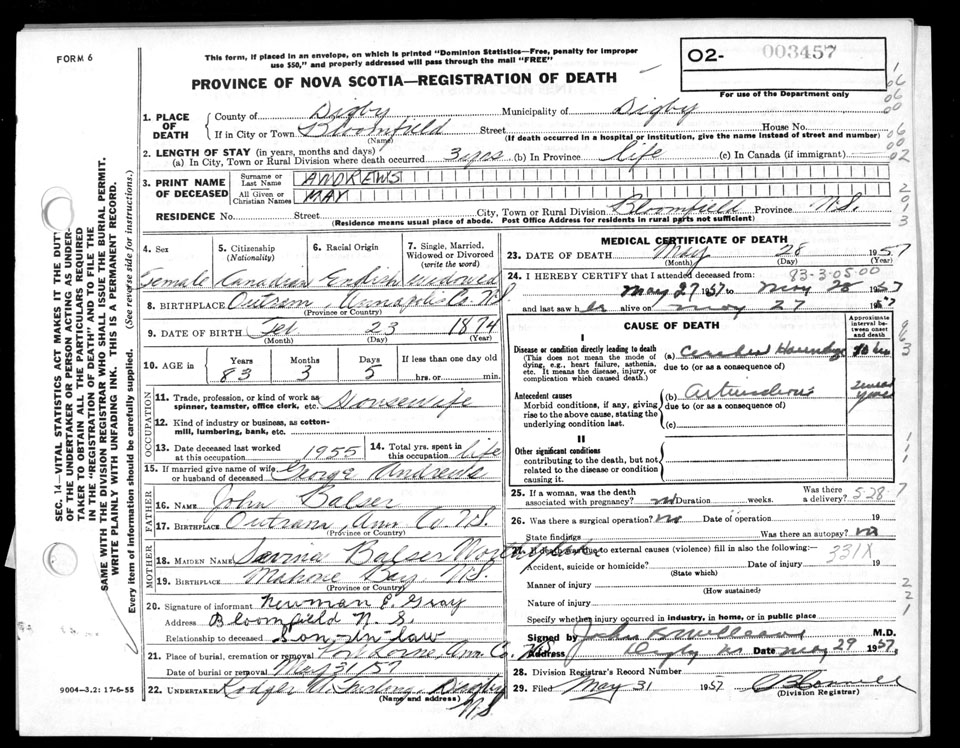 FORM 6
This form, if placed in an envelope, on which is printed "Dominion Statistics—Free, penalty for improper
use $50," and properly addressed will pass through the mail "FREE"
PROVINCE OF NOVA SCOTIA—REGISTRATION OF DEATH
O2- 003457
For use of the Department only
SEC. 14—VITAL STATISTICS ACT MAKES IT THE DUTY
OF THE UNDERTAKER OR PERSON ACTING AS UNDER-
TAKER TO OBTAIN ALL THE PARTICULARS REQUIRED
IN THE "REGISTRATION OF DEATH" AND TO FILE THE
SAME WITH THE DIVISION REGISTRAR WHO SHALL ISSUE THE BURIAL PERMIT.
WRITE PLAINLY WITH UNFADING INK. THIS IS A PERMANENT RECORD.
Every item of information should be carefully supplied. (See reverse side for instructions.)
1. PLACE OF DEATH
County of Digby Municipality of Digby
If in City or Town Bloomfield Street House No.
(Name) (If death occurred in a hospital or institution, give the name instead of street and number)
2. LENGTH OF STAY (in years, months and days)
(a) In City, Town or Rural Division where death occurred 3 yrs (b) In Province life (c) In Canada (if immigrant)
3. PRINT NAME OF DECEASED
Surname or Last Name ANDREWS
All Given or Christian Names MAY
RESIDENCE No. Street City, Town or Rural Division Bloomfield Province N.S.
(Residence means usual place of abode. Post Office Address for residents in rural parts not sufficient)
4. Sex 5. Citizenship (Nationality) 6. Racial Origin 7. Single, Married, Widowed or Divorced (write the word)
Female Canadian English widowed
8. BIRTHPLACE Outram, Annapolis Co. N.S.
(Province or Country)
9. DATE OF BIRTH Feb 23 1874
(Month) (Day) (Year)
10. AGE in Years Months Days If less than one day old
83 3 5 hrs. or min.
OCCUPATION
11. Trade, profession, or kind of work as
spinner, teamster, office clerk, etc. Housewife
12. Kind of industry or business, as cotton-
mill, lumbering, bank, etc.
13. Date deceased last worked at this occupation 1955 14. Total yrs. spent in this occupation life
15. If married give name of wife or husband of deceased George Andrews
FATHER
16. NAME John Balser
17. BIRTHPLACE Outram, Ann Co N.S.
(Province or Country)
MOTHER
18. MAIDEN NAME Balser
19. BIRTHPLACE Mahone Bay N.S.
(Province or Country)
20. Signature of informant Newman E. Gray
Address Bloomfield N.S.
Relationship to deceased Son-in-law
21. Place of burial, cremation or removal Port Lorne, Ann. Co. N.S.
Date of burial or removal May 31/57
22. UNDERTAKER Digby
(Name and address) N.S.
9004—3.2: 17-6-55
MEDICAL CERTIFICATE OF DEATH
23. DATE OF DEATH May 28 1957
(Month) (Day) (Year)
83-3-05-00
24. I HEREBY CERTIFY that I attended deceased from:
May 27 1957 to May 28 1957
and last saw h er alive on may 27 1957
CAUSE OF DEATH
Approximate interval between onset and death
I
Disease or condition directly leading to death
(This does not mean the mode of
dying, e.g., heart failure, asthenia,
etc. It means the disease, injury, or
complication which caused death.)
(a) 10 hrs
due to (or as a consequence of)
Antecedent causes
Morbid conditions, if any, giving
rise to the above cause, stating the
underlying condition last.
(b) years
due to (or as a consequence of)
(c)
II
Other significant conditions
contributing to the death, but not
related to the disease or condition
causing it.
25. If a woman, was the death
associated with pregnancy? no Duration weeks. Was there a delivery? 5-28-7
26. Was there a surgical operation? no Date of operation 19
State findings Was there an autopsy? no
27. If death was due to external causes (violence) fill in also the following:
331X
Accident, suicide or homicide? Date of injury 19
(State which)
Manner of injury
(How sustained)
Nature of injury
Specify whether injury occurred in industry, in home, or in public place
Signed by John M.D.
Address Digby NS Date May 29 1957.
28. Division Registrar's Record Number
29. Filed May 31 1957
(Division Registrar)